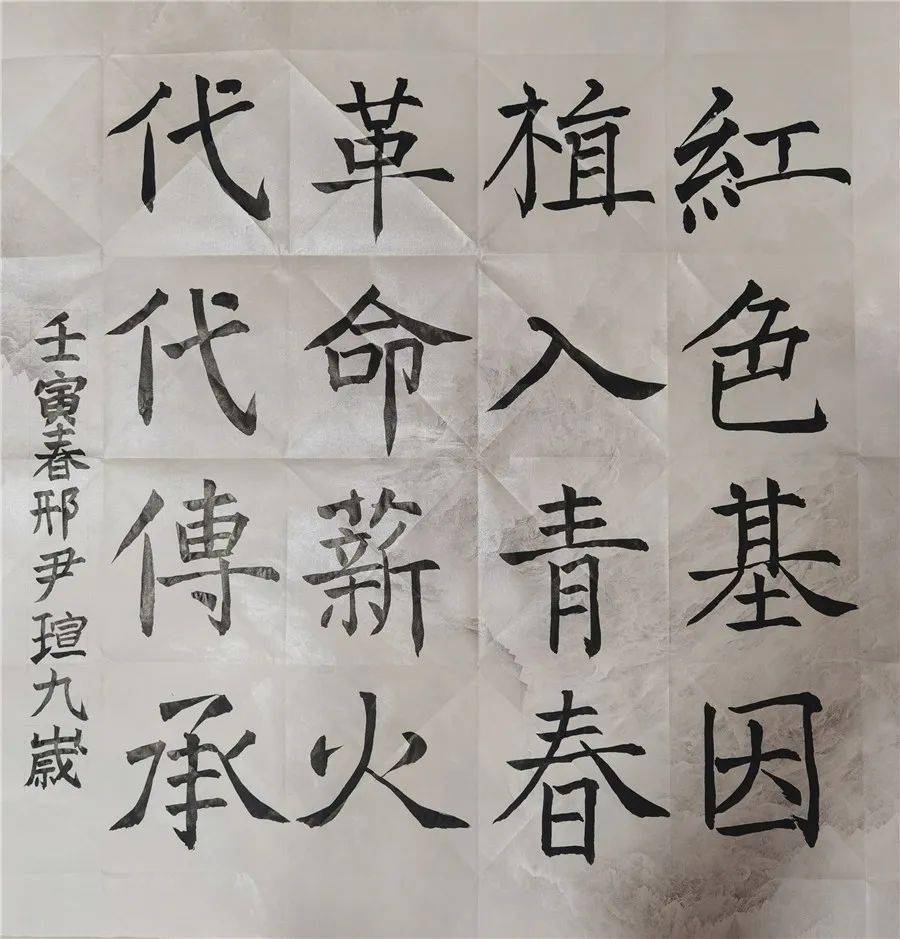 紅色基因
植入青春
革命薪火
代代傳承
壬寅春邢尹瑄九歲